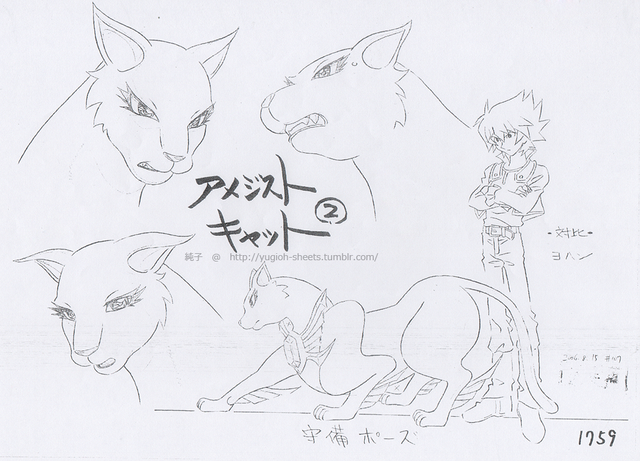 アメジスト
キャット ②
純子 @ http://yugioh-sheets.tumblr.com/
・対比・
ヨハン
守備 ポーズ
1759